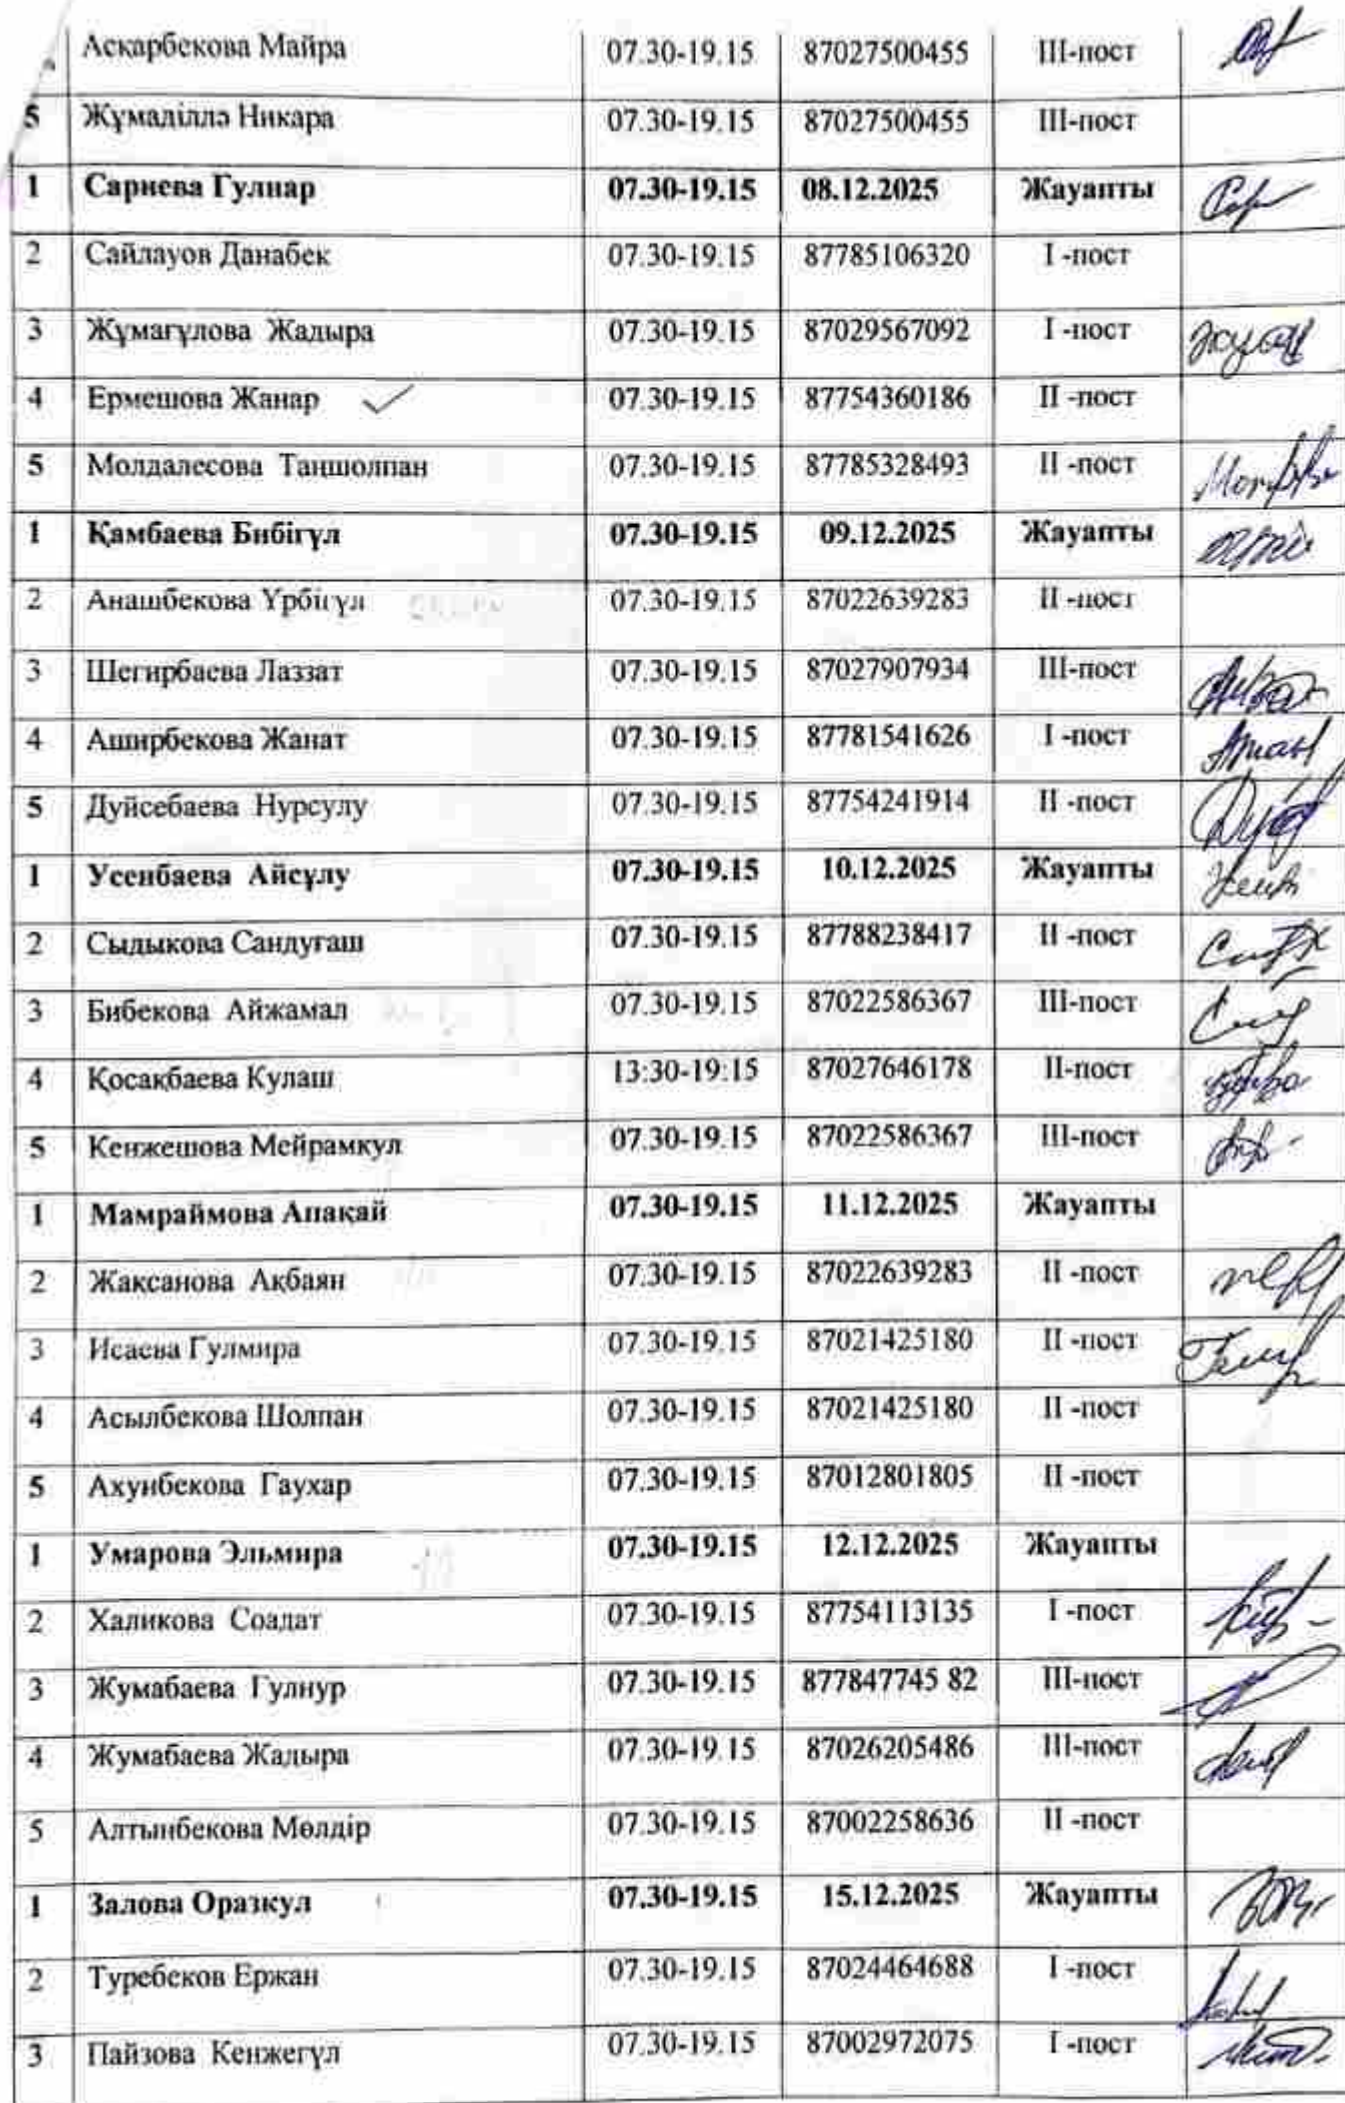 Асқарбекова Майра 07.30-19.15 87027500455 III-пост
5 Жұмаділлә Никара 07.30-19.15 87027500455 III-пост
1 Сариева Гулнар 07.30-19.15 08.12.2025 Жауапты
2 Сайлауов Данабек 07.30-19.15 87785106320 I -пост
3 Жұмағұлова Жадыра 07.30-19.15 87029567092 I -пост
4 Ермешова Жанар ✓ 07.30-19.15 87754360186 II -пост
5 Молдалесова Таңшолпан 07.30-19.15 87785328493 II -пост
1 Қамбаева Бибігүл 07.30-19.15 09.12.2025 Жауапты
2 Анашбекова Үрбігүл 07.30-19.15 87022639283 II -пост
3 Шегирбаева Лаззат 07.30-19.15 87027907934 III-пост
4 Аширбекова Жанат 07.30-19.15 87781541626 I -пост
5 Дуйсебаева Нурсулу 07.30-19.15 87754241914 II -пост
1 Усенбаева Айсұлу 07.30-19.15 10.12.2025 Жауапты
2 Сыдыкова Сандуғаш 07.30-19.15 87788238417 II -пост
3 Бибекова Айжамал 07.30-19.15 87022586367 III-пост
4 Қосақбаева Кулаш 13:30-19:15 87027646178 II-пост
5 Кенжешова Мейрамкул 07.30-19.15 87022586367 III-пост
1 Мамраймова Апақай 07.30-19.15 11.12.2025 Жауапты
2 Жақсанова Ақбаян 07.30-19.15 87022639283 II -пост
3 Исаева Гулмира 07.30-19.15 87021425180 II -пост
4 Асылбекова Шолпан 07.30-19.15 87021425180 II -пост
5 Ахунбекова Гаухар 07.30-19.15 87012801805 II -пост
1 Умарова Эльмира 07.30-19.15 12.12.2025 Жауапты
2 Халикова Соадат 07.30-19.15 87754113135 I -пост
3 Жумабаева Гулнур 07.30-19.15 877847745 82 III-пост
4 Жумабаева Жадыра 07.30-19.15 87026205486 III-пост
5 Алтынбекова Мөлдір 07.30-19.15 87002258636 II -пост
1 Залова Оразкул 07.30-19.15 15.12.2025 Жауапты
2 Туребеков Ержан 07.30-19.15 87024464688 I -пост
3 Пайзова Кенжегүл 07.30-19.15 87002972075 I -пост